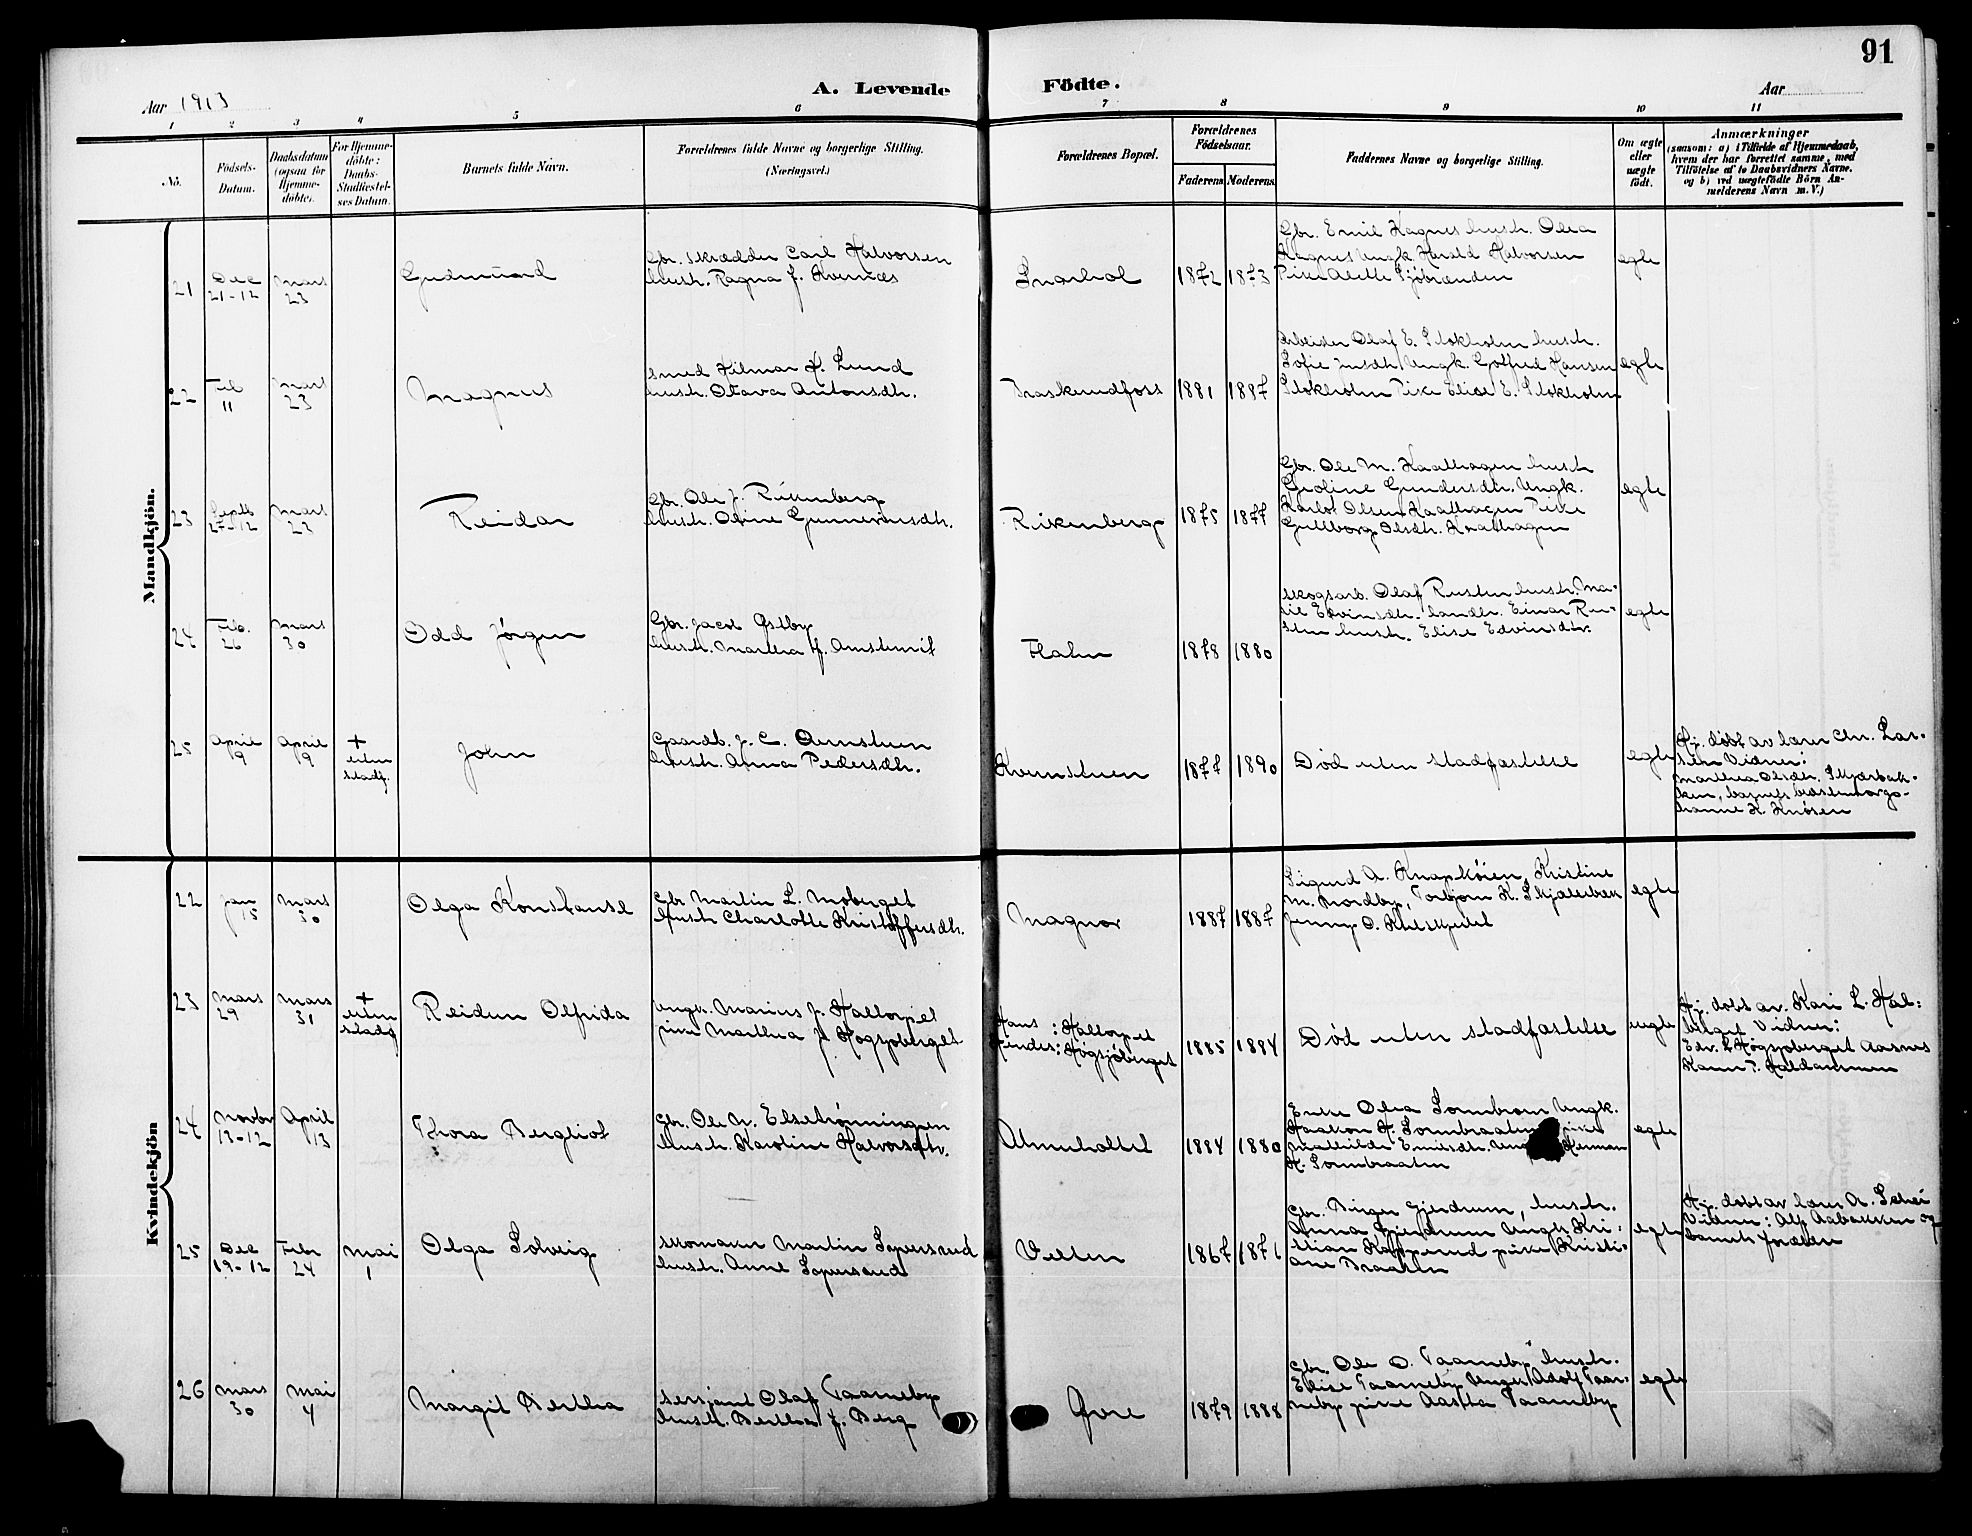 91
Aar 1913
A. Levende
Födte.
Aar
1 2 3 4 5 6 7 8 9 10 11
No.
Födsels-
Datum.
Daabsdatum
(ogsaa for
Hjemme-
döbte).
For Hjemme-
döbte:
Daabs-
Stadfæstel-
ses Datum.
Barnets fulde Navn.
Forældrenes fulde Navne og borgerlige Stilling.
(Næringsvei.)
Forældrenes Bopæl.
Forældrenes
Födselsaar.
Faderens
Moderens
Faddernes Navne og borgerlige Stilling.
Om ægte
eller
uægte
födt.
Anmærkninger
(saasom: a) i Tilfælde af Hjemmedaab,
hvem der har forrettet samme, med
Tilföielse af to Daabsvidners Navne,
og b) ved uægtefödte Börn An-
melderens Navn m. V.)
Mandkjön.
21
Dec
21-12
Mars
23
Gudmund
Gbr. skrædder Carl Halvorsen
hustr. Ragna f. Kvernæs
1872
1873
Gbr. Emil Hagnes hustr. Olea
Hagnes Ungk. Harald Halvorsen
Pike Alette Sjöbrænden
egte
22
Feb
11
Mars
23
Magnus
smed Hilmar H. Lund
hustr. Otava Antonsdtr.
Fraskundfoss
1881
1887
Arbeider Olaf E. Stokholm hustr.
Sofie Ungk. Gotfred Hansen
Stokholm Pike Elise E. Stokholm
egte
23
Septb
27-12
Mars
23
Reidar
Gbr. Ole J. Rikenberg
hustr. Oline Gunneriusdtr.
Rikenberg
1875
1877
Gbr. Ole M. Kaathagen hustr
Groline Gundersdtr. Ungk.
Karlot Olsen Kaathagen Pike
Gullborg Olsdtr. Kaathagen
egte
24
Feb.
26
Mars
30
Odd Jörgen
Gbr. Jacob Østby
hustr. Marthea H. Amstmil
Flaten
1878
1880
skogsarb. Olaf Rusten hustr. Ma-
tie Edvinsdtr. landbr. Einar Ru-
sten hustr. Elise Edvinsdtr.
egte
25
April
9
April
9
+
uten
stadf.
John
Gaardb. J. C. Arnstuen
hustr. Anna Pedersdtr.
Kvernstuen
1877
1890
Död uten stadfæstelse
egte
Hj. döbt av lærer Chr. Lar-
sen Vidner:
Marthea Olsdtr. Skjærbak-
ken, barnets bedstemor og
hanne K. Knösen
Kvindekjön
22
Jan
15
Mars
30
Olga Konstanse
Gbr Martin L. Moberget
Hustr Charlotte Kristoffersdtr.
Magnor
1887
1887
Sigurd A. Knapköien, Kristine
M. Nordby, Torbjorn K. Skjæterbæk
Jenny O.
egte
23
Mars
29
Mars
31
+
uten
stadf
Reidun Olfrida
Ungk. Marius J. Haltorpet
pike Marthea J Høgsjoberget
Hans: Haltorpet
Hindes: Høgsjöberget
1885
1894
Död uten stadfæstelse
uegte
Hj. döbt av. Kari L. Hal:
berget Vidner:
Edv. L Høgsjoberget Aasnes
Karen P. Haldammen
24
Novbr
13-12
April
13
Thora Bergliot
Gbr. Ole N. Elsetrønningen
Hustr. Karoline Halvorsdtr.
Almeholtet
1884
1880
Enke Olea Sornbraaten Ungk.
Haakon H. Sornbraaten pike
Mathilde Emilsdtr. Herman
H. Sornbraaten
egte
25
Dec
19-12
Febr
24
Mai
1
Olga Solveig
skomaker Martin Sopersrud
hustr. Anne Sopersrud
Velten
1867
1871
Gbr. Birger Gjerdrum, hustr.
Anna Gjerdrum Ungk. Kri-
stian Kopperud pike Kristi-
ane Braaten
egte
Hj. döbt av lærer A. Schei
Vidner: Alf Aabakken og
barnets forældre
26
Mars
30
Mai
4
Margit Berthea
sersjant Olaf Taarneby
hustr. Berthea f. Berg
Øvre
1879
1888
Gbr. Ole O. Taarneby hustr.
Elise Taarneby Ungk. Adolf Taar-
neby pike Aasta Taarneby
egte